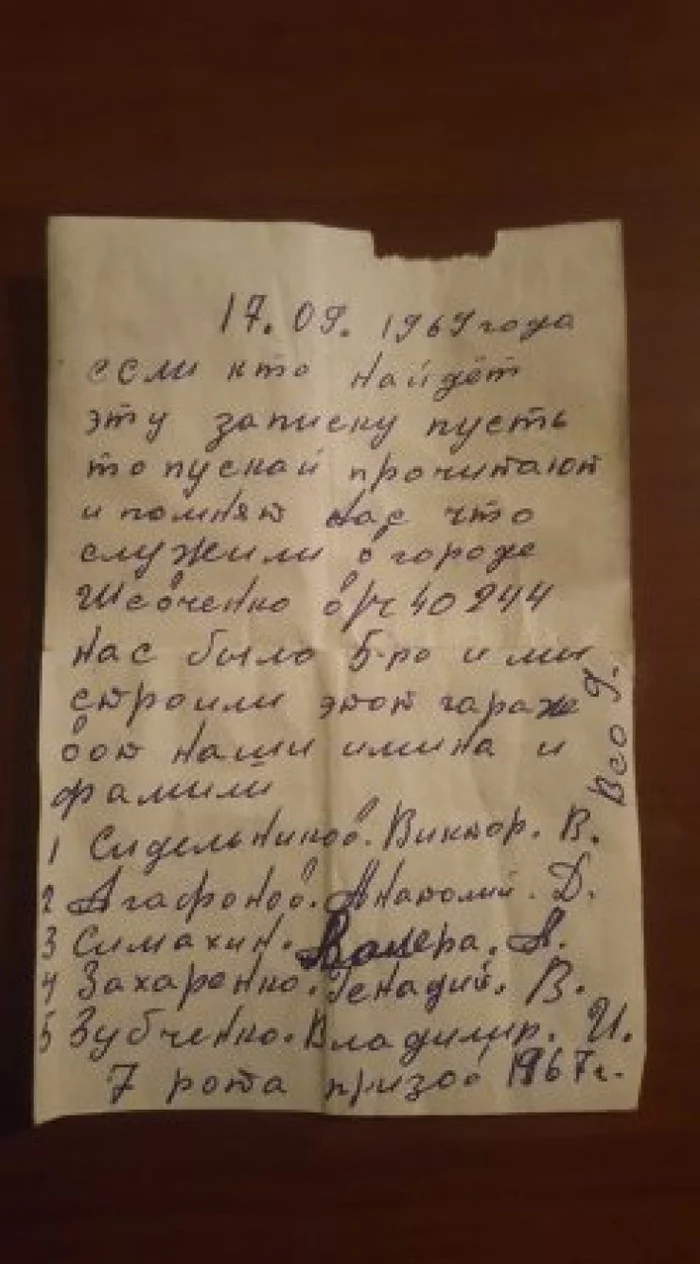 17.09.1969 года
если кто найдёт
эту записку пусть
то пускай прочитают
и помнят нас что
служили в городе
Шевченко в/ч 40244
нас было 5-ро и ми
строили этот гараж
вот наши имина и
фамилй
1 Сидельников. Виктор. В.
2 Агафонов. Анатолий. Д.
3 Симахин. Валера. А.
4 Захаренко. Генадий. В.
5 Зубченко. Владимир. И.
7 рота призов 1967г.